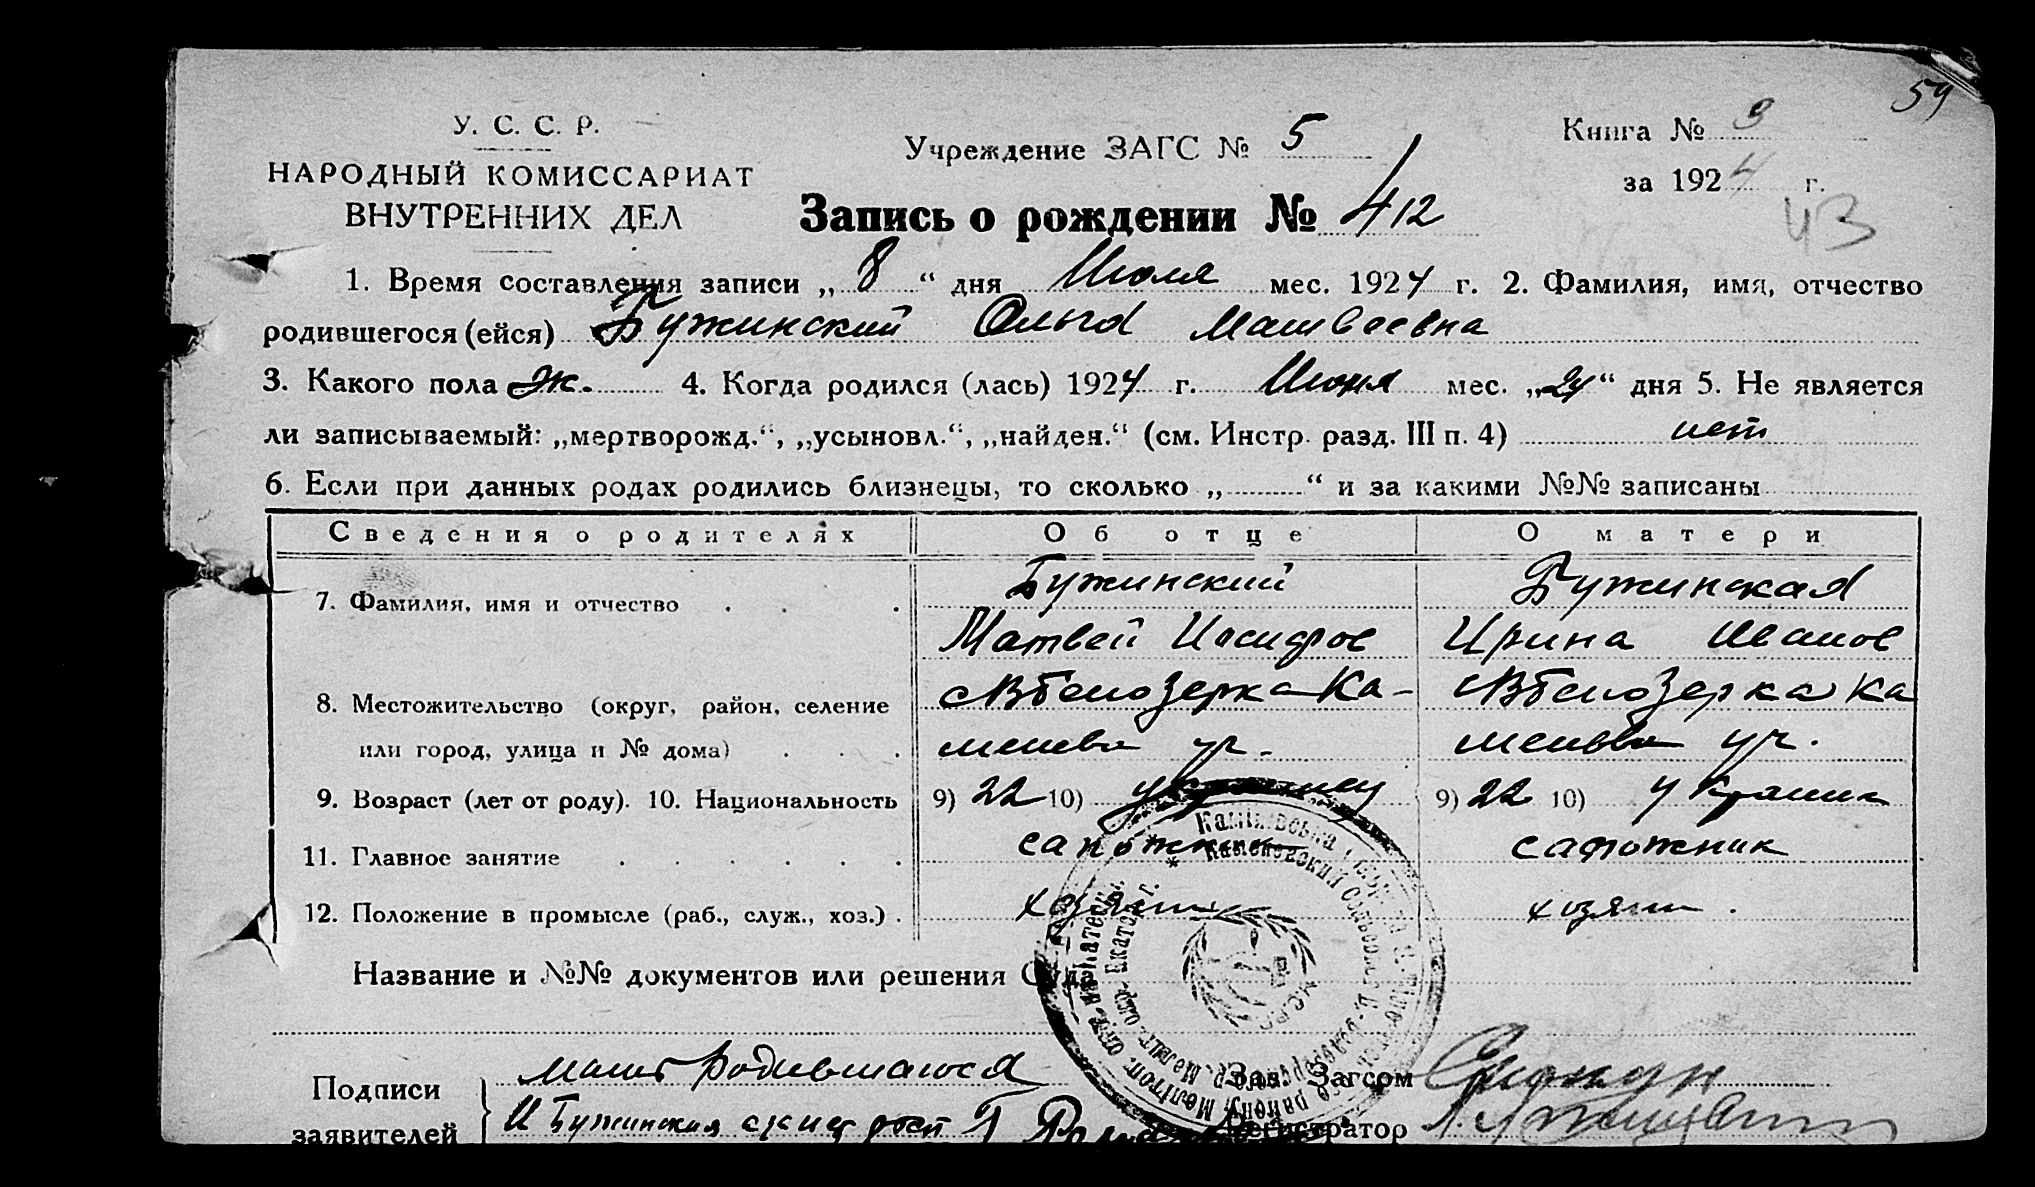 59
У. С. С. Р.
НАРОДНЫЙ КОМИССАРИАТ
ВНУТРЕННИХ ДЕЛ
Учреждение ЗАГС № 5
Книга № 3
за 1924 г.
43
Запись о рождении № 412
1. Время составления записи „ 8 “ дня Июля мес. 1924 г. 2. Фамилия, имя, отчество
родившегося (ейся) Бужинский Ольга Матвеевна
3. Какого пола ж. 4. Когда родился (лась) 1924 г. Июня мес. „24“ дня 5. Не является
ли записываемый: „мертворожд.“, „усыновл.“, „найден.“ (см. Инстр. разд. III п. 4) нет
6. Если при данных родах родились близнецы, то сколько „ “ и за какими №№ записаны
Сведения о родителях Об отце О матери
7. Фамилия, имя и отчество Бужинский Бужинская
Матвей Иосифов Ирина Иванов
8. Местожительство (округ, район, селение Ка- Ка
или город, улица и № дома)
9. Возраст (лет от роду). 10. Национальность 9) 22 10) украинец 9) 22 10) украинк
11. Главное занятие сапожник сапожник
12. Положение в промысле (раб., служ., хоз.) хозяин хозяин.
Название и №№ документов или решения Суда
Подписи
заявителей
мать родившагося
И Бужинская
Зав. Загсом
Регистратор